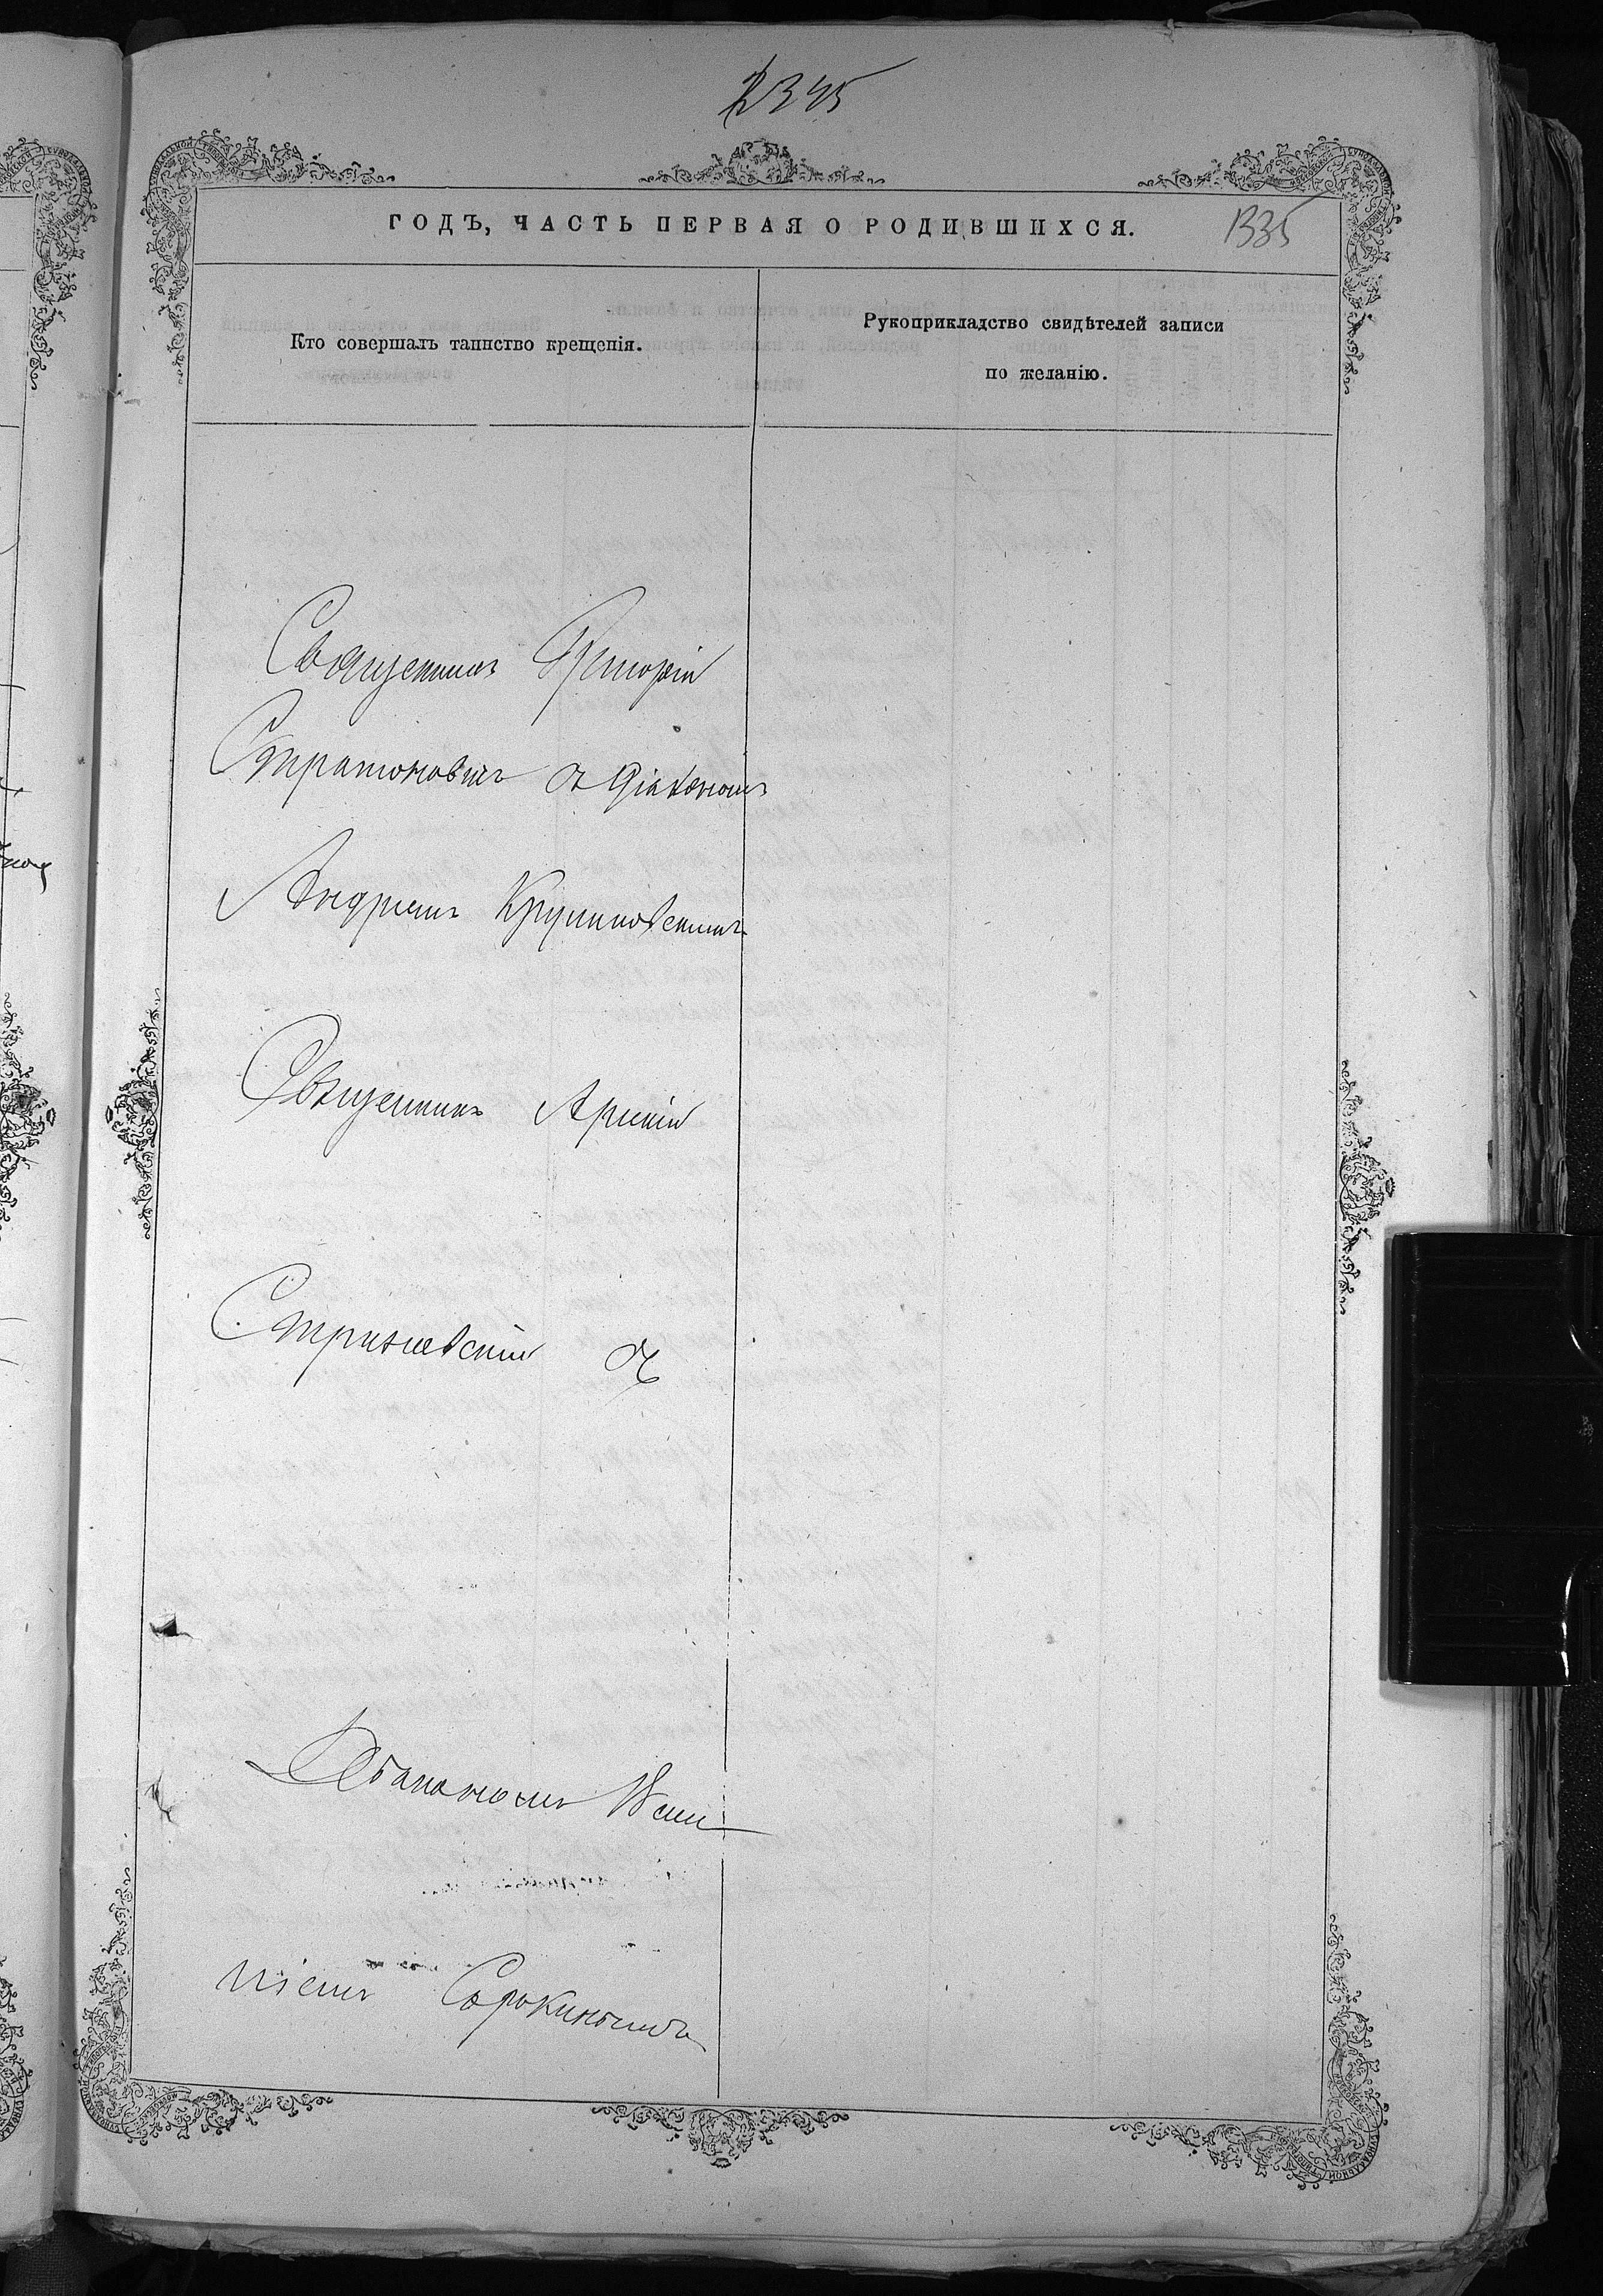 ГОДЪ, ЧАСТЬ ПЕРВАЯ О РОДИВШИХСЯ.
1335
Кто совершалъ таинство крещенія.
Рукоприкладство свидѣтелей записи
по желанію.
Священникъ Григорій
Стратоновичъ съ Діакономъ
Андреемъ Крушиновскимъ
Священникъ
Стрижевскій съ
Діакономъ Васи
ліемъ Сорокинымъ